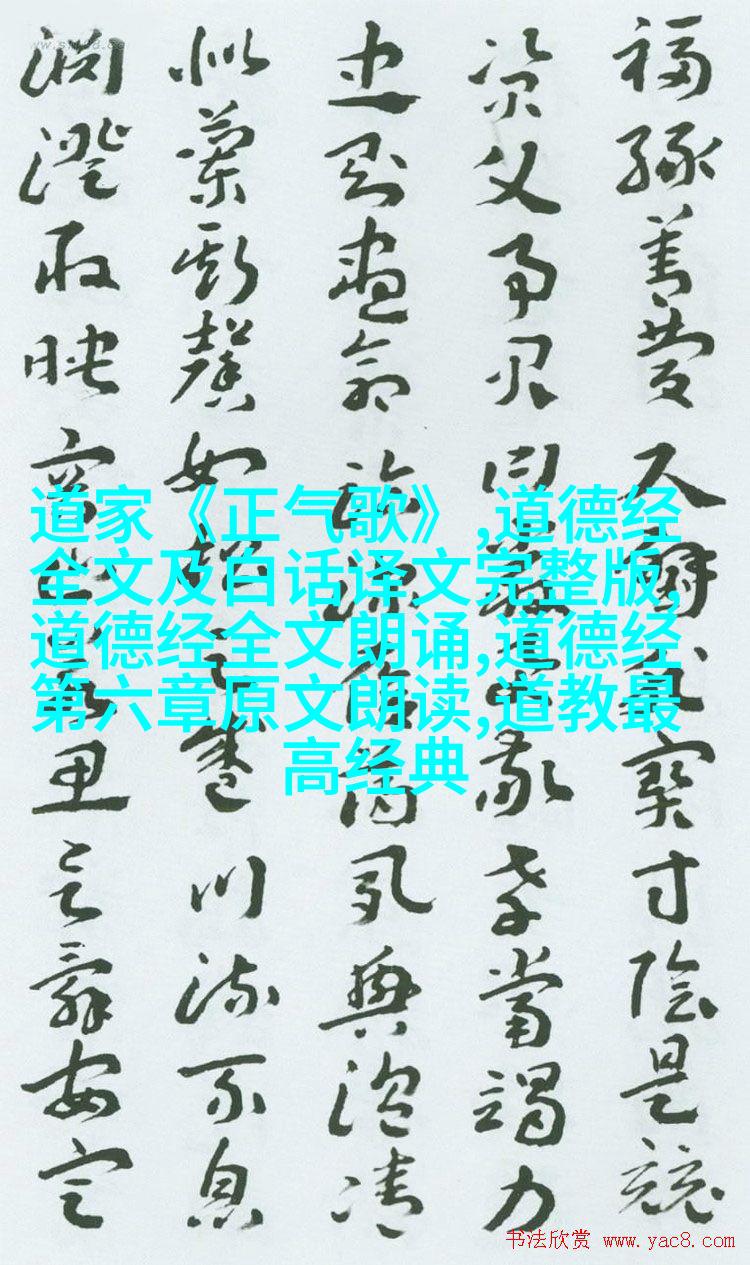 福緣善慶尺璧非寶寸陰是競
資父事君曰嚴與敬孝當竭力
忠則盡命臨深履薄夙興溫凊
似蘭斯馨如松之盛川流不息
淵澄取映容止若思言辭安定
道家《正气歌》,道德经
全文及白话译文完整版,
道德经全文朗诵,道德经
第六章原文朗读,道教最
高经典
书法欣赏 www.yac8.com